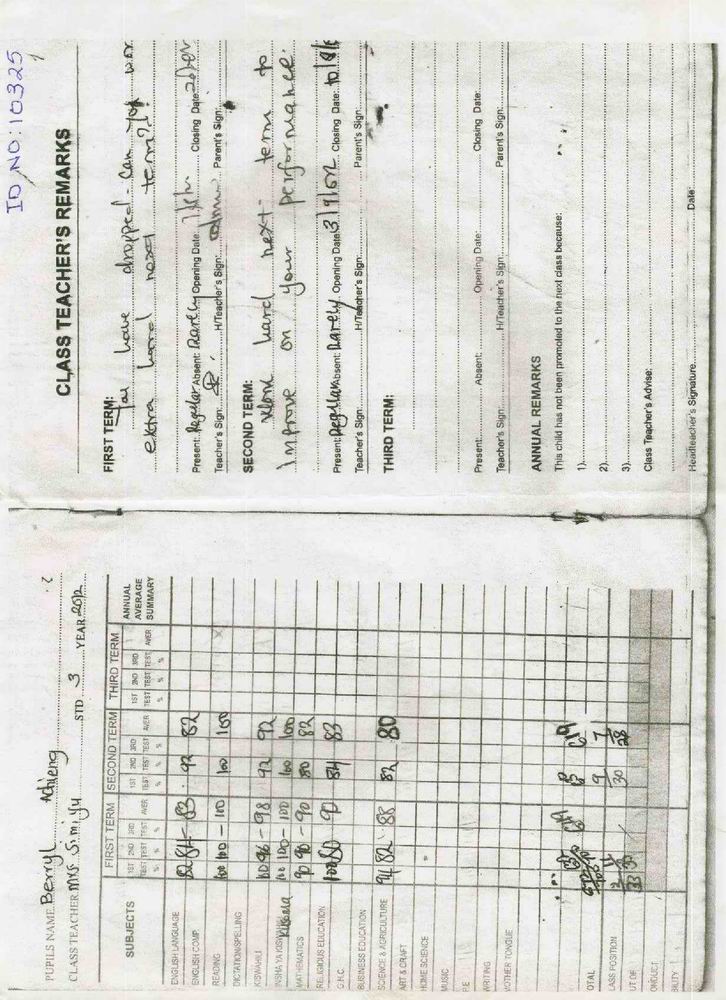 ID NO: 10325
CLASS TEACHER'S REMARKS
FIRST TERM:
You have dropped - Can you
extra hard next term?!
Present: Regular Absent: Rarely Opening Date: Closing Date:
Teacher's Sign: H/Teacher's Sign: Parent's Sign:
SECOND TERM:
Work hard next term to
Improve on your performance.
Present: Regular Absent: Rarely Opening Date: 3/9/012 Closing Date:
Teacher's Sign: H/Teacher's Sign: Parent's Sign:
THIRD TERM:
Present: Absent: Opening Date: Closing Date:
Teacher's Sign: H/Teacher's Sign: Parent's Sign:
ANNUAL REMARKS
This child has not been promoted to the next class because:
1).
2).
3).
Class Teacher's Advise:
Headteacher's Signature Date:
PUPILS NAME Berryl Achieng
CLASS TEACHER Mrs. Simiyu STD 3 YEAR 2012
SUBJECTS FIRST TERM SECOND TERM THIRD TERM ANNUAL AVERAGE SUMMARY
1ST TEST % 2ND TEST % 3RD TEST % AVER 1ST TEST % 2ND TEST % 3RD TEST % AVER 1ST TEST % 2ND TEST % 3RD TEST % AVER
ENGLISH LANGUAGE
ENGLISH COMP. 84 - 83 92 82
READING 100 100 - 100 100 100
DICTATION/SPELLING
KISWAHILI 96 - 98 92 92
INSHA YA KISWAHILI 100 100 - 100 100 100
MATHEMATICS 90 90 - 90 80 82
RELIGIOUS EDUCATION 100 80 90 84 83
G.H.C.
BUSINESS EDUCATION
SCIENCE & AGRICULTURE 94 82 88 82 80
ART & CRAFT
HOME SCIENCE
MUSIC
P.E
WRITING
MOTHER TONGUE
OTAL
LASS POSITION 9 7
UT OF 33 30 30 28
ONDUCT
BILITY